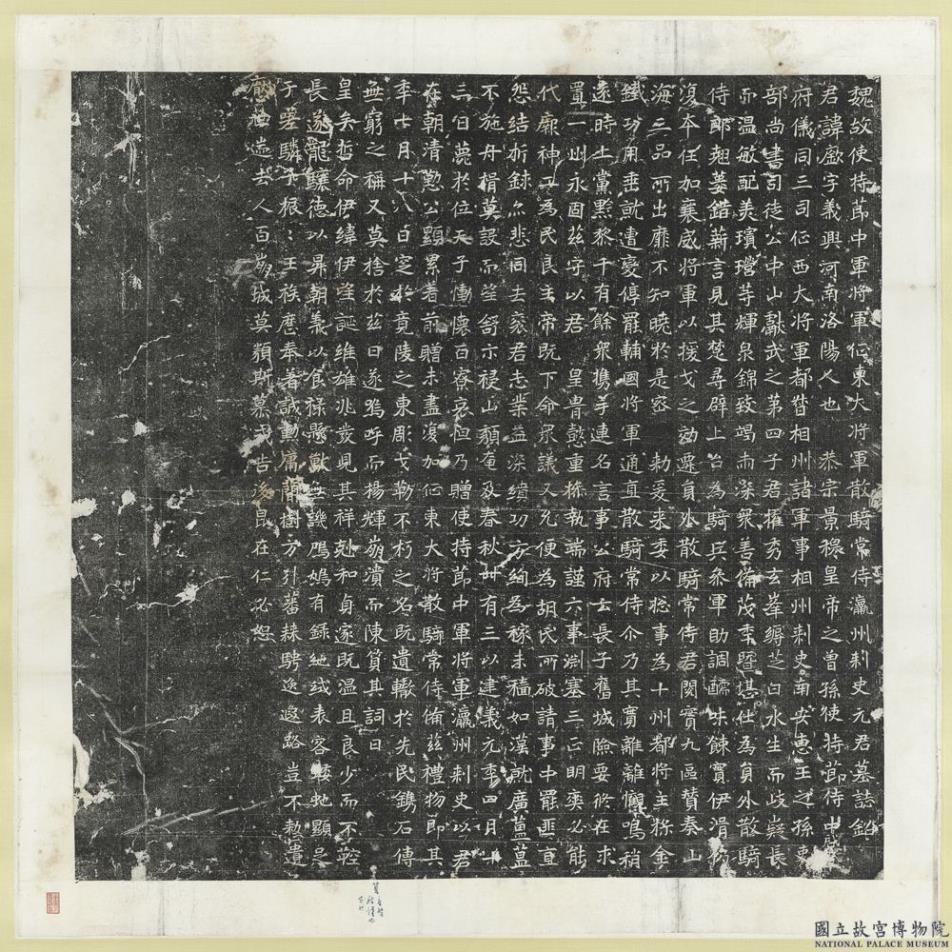 魏故使持節中軍將軍征東大將軍散騎常侍瀛州刺史元君墓誌銘
君諱廞字義興河南洛陽人也 恭宗景穆皇帝之曾孫使持節侍中
府儀同三司征西大將軍都督相州諸軍事相州刺史南安惠王之孫
部尚書司徒公中山獻武之第四子君擢秀玄峯縟芝口水生而歧嶷長
而溫敏配美璸 等輝泉錦致竭而深衆善備茂季 堪仕為員外散騎
侍郎翹蔞錯薪言見其楚尋辟上台為騎兵參軍助調 味餗實伊滑仍
復本任加襄威將軍以援戈之効遷員外散騎常侍君閱實九區贊奏山
海三品所出靡不知曉於是密 勅爰來委以怱事為十州都將主將金
鐵功用垂就遭憂停罷輔國將軍通直散騎常侍 乃其實離離 鳴稍
遠時上黨黔黎千有餘衆携手連名言事公府士長子舊城險要俻在求
置一州永固茲守以君 皇胄懿重 執端謹六事 塞三正明奕必能
代廨神 為民良主帝既下命衆議 允便為胡民所破請事中罷匪直
怨結折 悲同去 君志業益深績功 絢為稼未穡如漢就廣 
不施舟楫莫設而笙舒示祲山頹奄及春秋卌有三以建義元季四月十
三日薨於位天子慟懷百寮哀怛乃贈使持節中軍將軍瀛州刺史以君
在朝清懃公顯累著前贈未盡復加征東大將散騎常侍俻茲禮物即其
季七月十八日窆於竟陵之東彫戈勒不朽之名既遺轍於先民鐫石傳
無窮之稱又莫捨於茲日遂嗚呼而楊輝崩潰而陳質其詞曰
皇矣哲命伊緯伊 誕維雄兆發見其祥剋和貞家既溫且良少而不 
長遂龍驤德以昇朝義以食祿懸 無譏鳲鳩有錄 絨表容 虵顯足
于嗟驎子振振王族麾奉著誠勳庸 樹方外蕃 騁逸遐路豈不懃遺
 神 去人百 城莫頹斯慕式告後昆在仁必恕
國立故宮博物院
NATIONAL PALACE MUSEUM